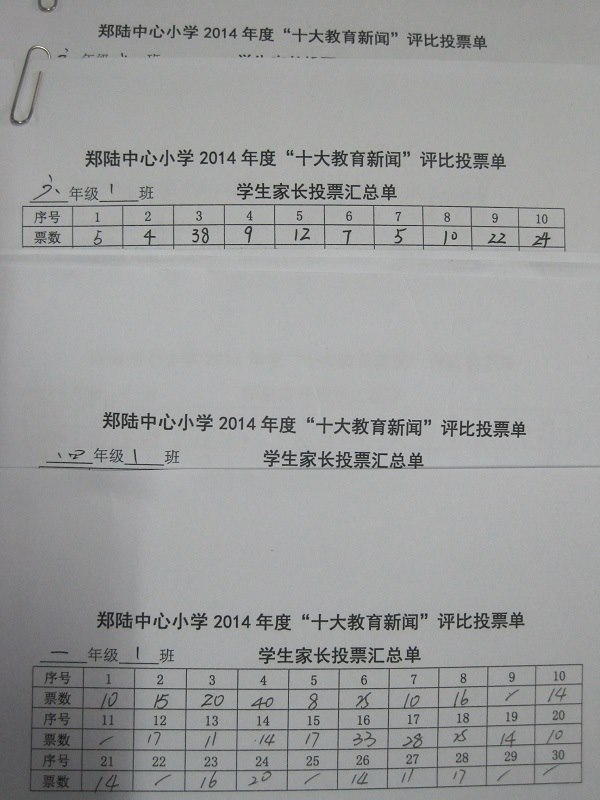 郑陆中心小学 2014 年度“十大教育新闻”评比投票单
年级 班
郑陆中心小学 2014 年度“十大教育新闻”评比投票单
六年级 1 班 学生家长投票汇总单
序号 1 2 3 4 5 6 7 8 9 10
票数 5 4 38 9 12 7 5 10 22 24
郑陆中心小学 2014 年度“十大教育新闻”评比投票单
四年级 1 班 学生家长投票汇总单
郑陆中心小学 2014 年度“十大教育新闻”评比投票单
一年级 1 班 学生家长投票汇总单
序号 1 2 3 4 5 6 7 8 9 10
票数 10 15 20 40 8 25 10 16 / 14
序号 11 12 13 14 15 16 17 18 19 20
票数 / 17 11 14 17 33 28 25 14 10
序号 21 22 23 24 25 26 27 28 29 30
票数 14 / 16 20 / 14 11 17 / /